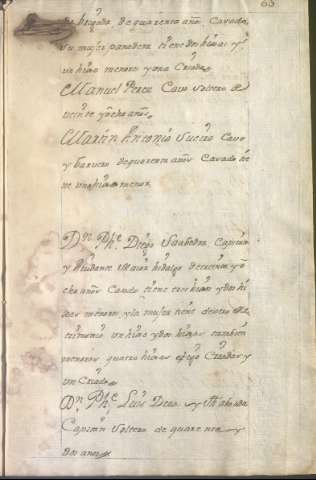 de quarenta años, Casado,
Su mujer panadera tiene dos hijas y
un hijo menores y una Criada.
Manuel Perez Cavo Soltero de
veinte y ocho años.
Martin Antonio Suero Cavo
y barvero de quarenta años Casado tie
ne un hijo menor
Dn. Phe. Diego Saabedra Capitan
y Aiudante Maior hidalgo de treinta y o
cho años Casado tiene tres hijos y dos hi
jas menores, y la mujer tiene dentro del
un hijo y dos hijas tambien
menores quatro Criados y
un Criado
Dn. Phe. Luis y
Capitan Soltero de quarenta y
dos años